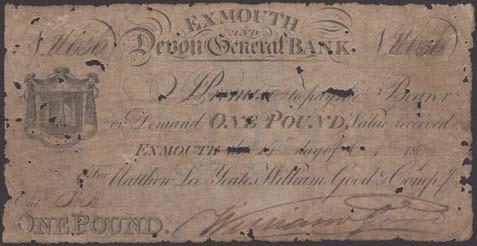 EXMOUTH
AND
Devon General BANK.
I Promise to pay the Bearer
on Demand ONE POUND, Value received.
EXMOUTH the 15 day of 180
For Matthew Lee Yeates, William Good & Compy.
ONE POUND.
William Good